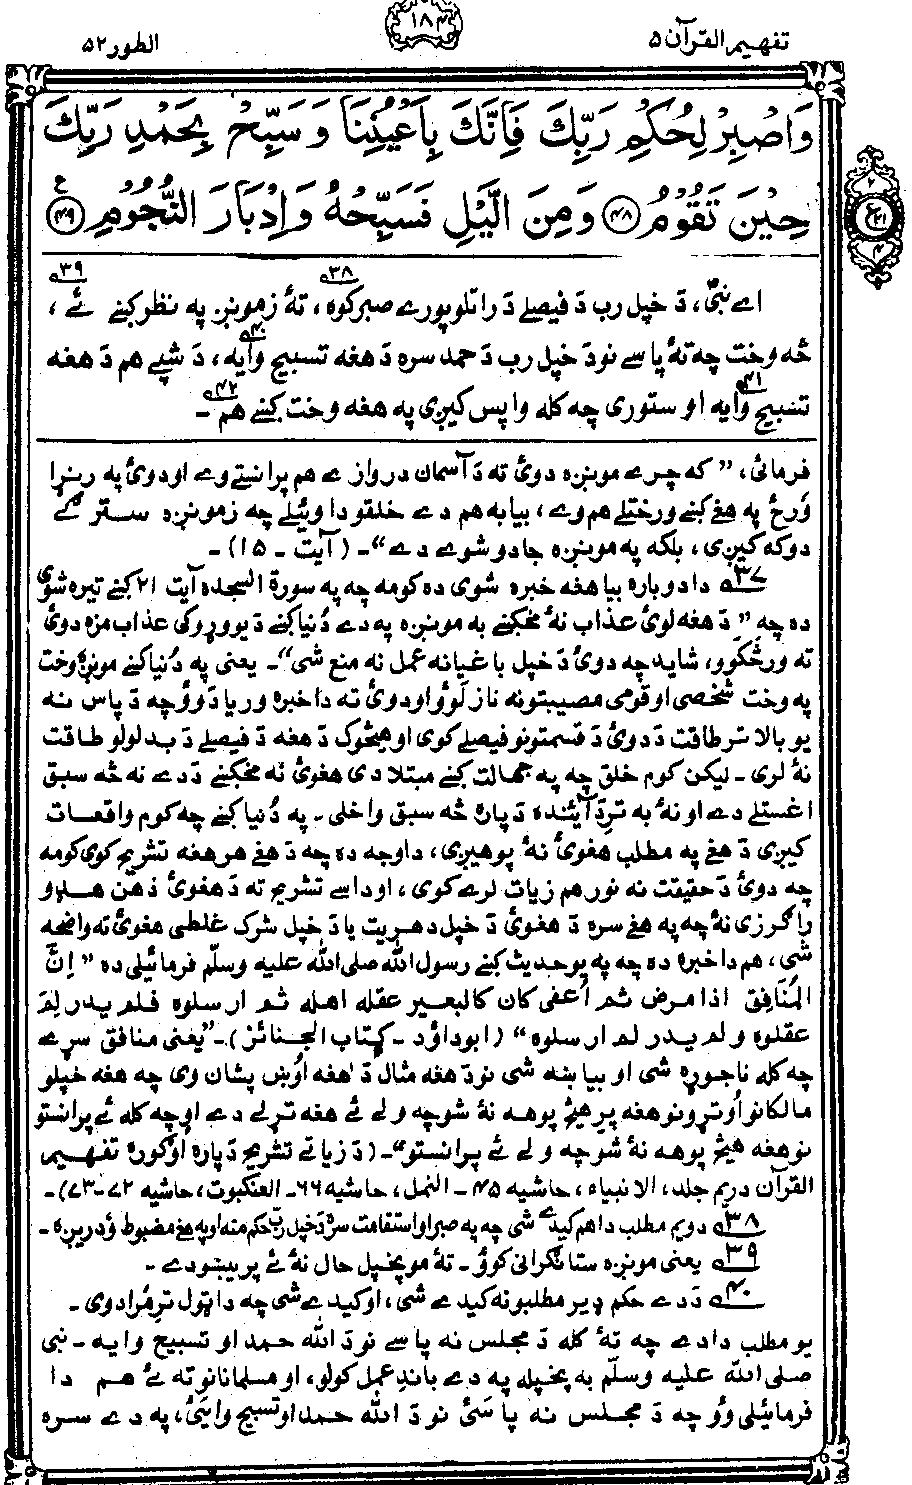 تفهيم القرآن ۵
۱۸۴
الطور ۵۲
وَاصْبِرْ لِحُكْمِ رَبِّكَ فَإِنَّكَ بِأَعْيُنِنَا وَسَبِّحْ بِحَمْدِ رَبِّكَ
حِيْنَ تَقُوْمُ ﴿۴۸﴾ وَمِنَ الَّيْلِ فَسَبِّحْهُ وَإِدْبَارَ النُّجُوْمِ ﴿۴۹﴾ ع
اے نبیؐ، دَ خپل رب دَ فیصلے دَ راتلو پورے صبر کوہ،۳۸ تهٔ زمونږ په نظر کښے ئے،۳۹
څه وخت چه تهٔ پاسے نو دَ خپل رب دَ حمد سره دَ هغه تسبیح وایه،۴۰ دَ شپے هم دَ هغه
تسبیح وایه۴۱ او ستوری چه کله واپس کیږی په هغه وخت کښے هم۴۲ ـ
فرمائی، ” که چرے مونږه دوئ ته دَ آسمان دروازے هم پرانستے وے او دوئ په رنړا
ورځ په هغے کښے ورختلے هم وے، بیا به هم دے خلقو دا وئیلے چه زمونږه سترګے
دوکه کیږی، بلکه په مونږه جادو شوے دے“ـ (آیت ـ ۱۵) ـ
۳۷ دا دوباره بیا هغه خبره شوی ده کومه چه په سورة السجده آیت ۲۱ کښے تیره شوی
ده چه ” دَ هغه لوئ عذاب نهٔ مخکښے به مونږه په دے دُنیا کښے دَ یو وړوکی عذاب مزه دوئ
ته ورڅکوو، شاید چه دوئ دَ خپل باغیانه عمل نه منع شی“ـ یعنی په دُنیا کښے مونږه وخت
په وخت شخصی او قومی مصیبتونه نازلوؤ او دوئ ته دا خبره وریادوؤ چه دَ پاس نه
یو بالاتر طاقت دَ دوئ دَ قسمتونو فیصلے کوی او هیڅوک دَ هغه دَ فیصلے دَ بدلولو طاقت
نهٔ لری ـ لیکن کوم خلق چه په جهالت کښے مبتلا دی هغوئ نه مخکښے دَ دے نه څه سبق
اغستلے دے او نهٔ به ترِ آئینده دَ پاره څه سبق واخلی ـ په دُنیا کښے چه کوم واقعات
کیږی دَ هغے په مطلب هغوئ نهٔ پوهیږی، دا وجه ده چه دَ هغے هر هغه تشریح کوی کومه
چه دوئ دَ حقیقت نه نور هم زیات لرے کوی، او داسے تشریح ته دَ هغوئ ذهن هډو
راګرزی نهٔ چه په هغے سره دَ هغوئ دَ خپل دهریت یا دَ خپل شرک غلطی هغوئ ته واضحه
شی، هم دا خبره ده چه په یو حدیث کښے رسول الله صلی الله علیه وسلم فرمائیلی ده ” اِنَّ
المُنَافِق اذا مرض ثم اُعفی کان کالبعیر عقله اهله ثم ارسلوه فلم یدر لِمَ
عقلوه و لم یدر لم ارسلوه“ (ابوداؤد ـ کتاب الجنائز)ـ ”یعنی منافق سرے
چه کله ناجوړه شی او بیا ښه شی نو دَ هغه مثال دَ هغه اُوښ پشان وی چه هغه خپلو
مالکانو اُوتړو نو هغه پرِ هیڅ پوهه نهٔ شو چه ولے ئے هغه تړلے دے او چه کله ئے پرانستو
نو هغه هیڅ پوهه نهٔ شو چه ولے ئے پرانستو“ـ (دَ زیاتے تشریح دَ پاره اُوګوره تفهیم
القرآن دریم جلد، الانبیاء، حاشیه ۴۵ ـ النمل، حاشیه ۶۶ ـ العنکبوت، حاشیه ۷۲-۷۳)ـ
۳۸ دویم مطلب دا هم کیدے شی چه په صبر او استقامت سره دَ خپل رب حکم منه او په هغے مضبوط ؤدریږه ـ
۳۹ یعنی مونږه ستا نګرانی کوؤ ـ تهٔ مو پخپل حال نهٔ ئے پریښودے ـ
۴۰ دَ دے حکم ډیر مطلبونه کیدے شی، او کیدے شی چه دا ټول ترِ مُراد وی ـ
یو مطلب دا دے چه تهٔ کله دَ مجلس نه پاسے نو دَ الله حمد او تسبیح وایه ـ نبی
صلی الله علیه وسلم به پخپله په دے باندِ عمل کولو، او مسلمانانو ته ئے هم دا
فرمائیلی وؤ چه دَ مجلس نه پاسئ نو دَ الله حمد او تسبیح وایئ، په دے سره